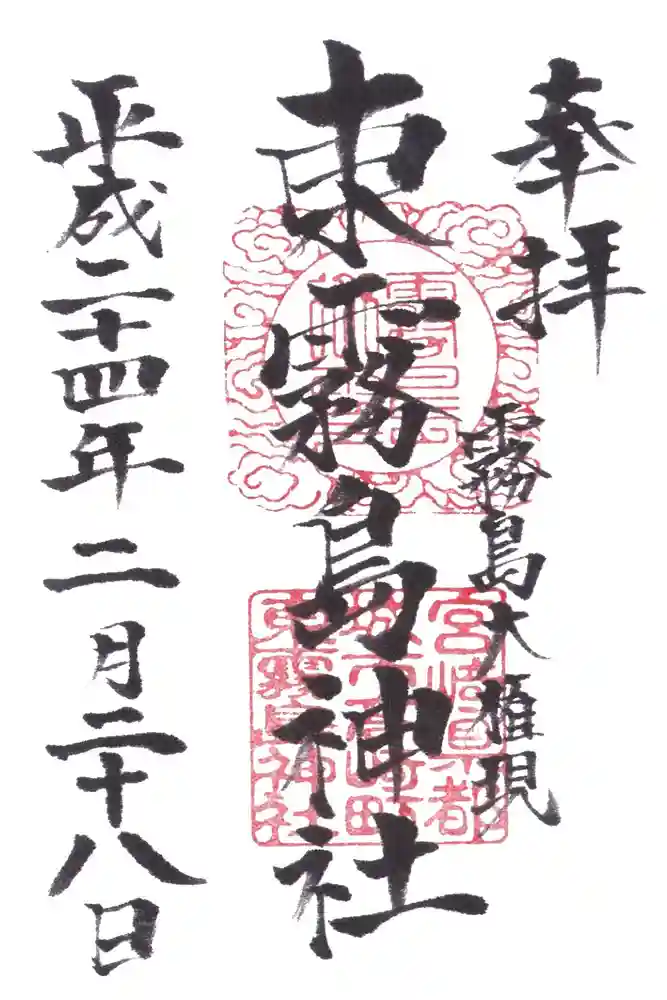 奉拝
霧島大権現
東霧島神社
平成二十四年 二月二十八日
宮崎県都
城市高崎町
東霧島神社